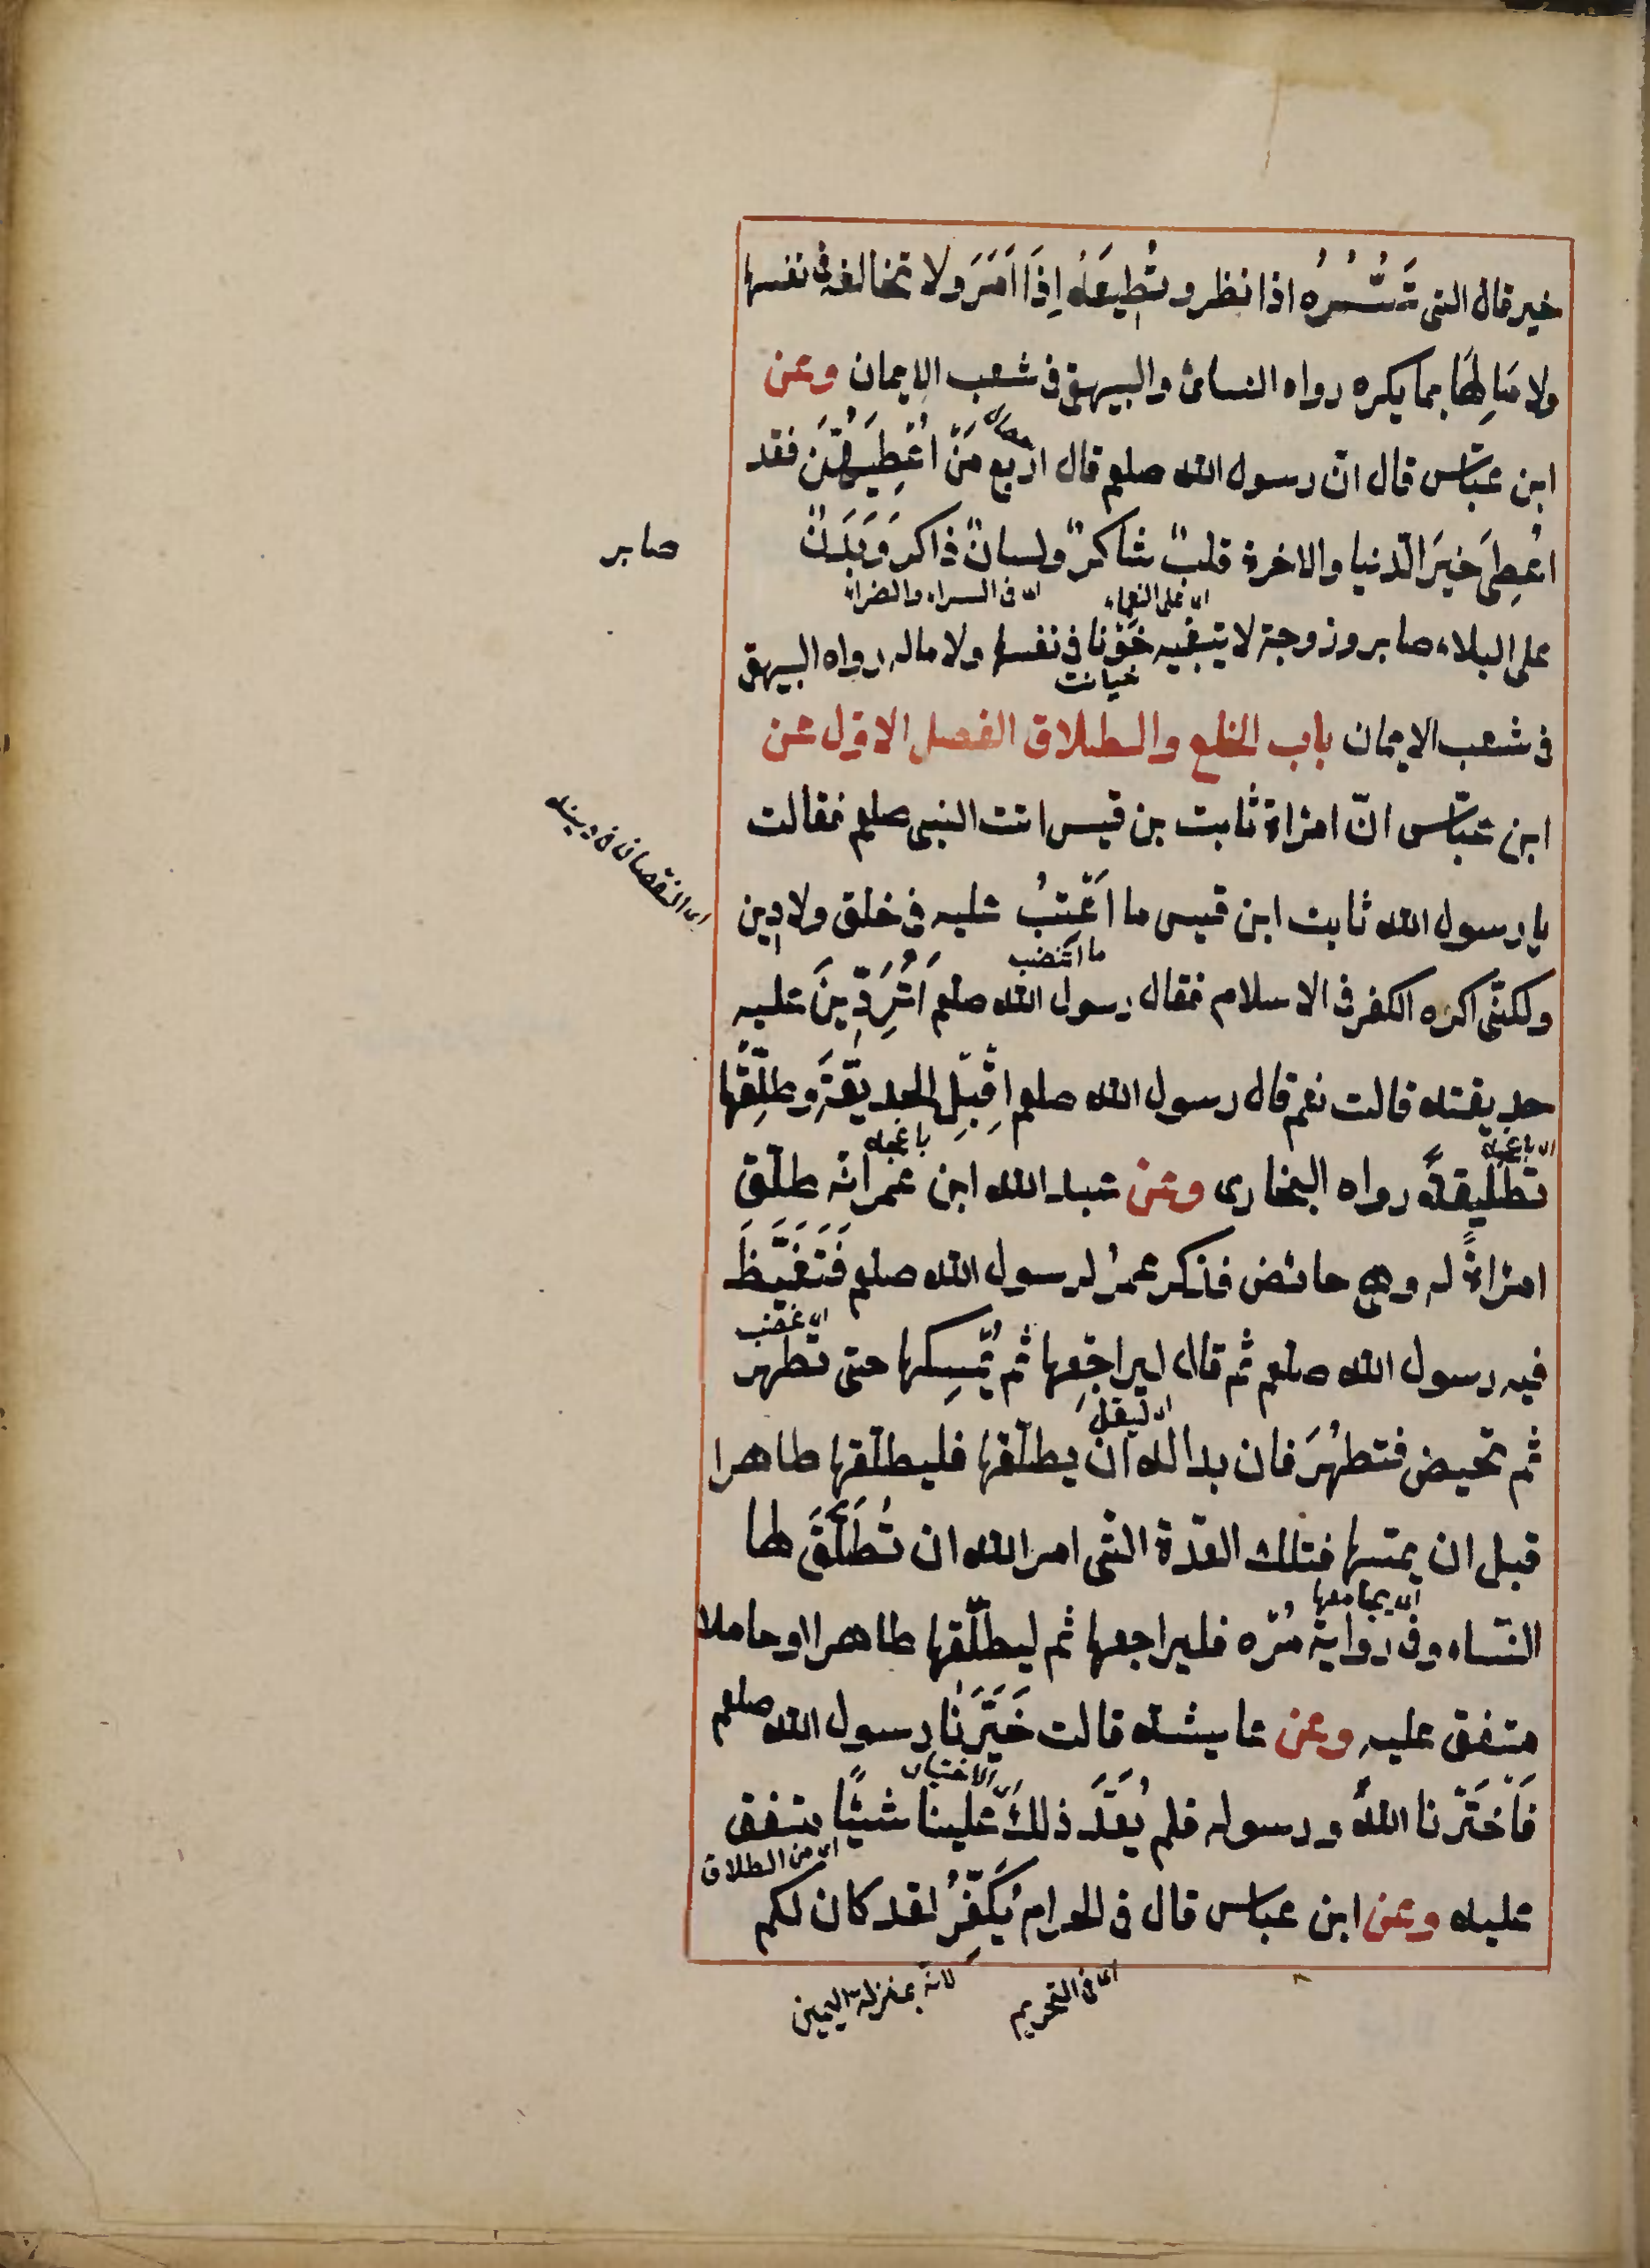 خير قال التى تَسُرُّهُ اذا نظر وتُطِيعُهُ اِذَا اَمَرَ ولا تخالفه فى نفسها
ولا مَالِهَا بما يكره رواه النسائى والبيهقى فى شعب الايمان وعن
خصال
ابن عبّاس قال انّ رسول الله صلعم قال اربع مَنْ اُعْطِيَهُنَّ فقد
اُعطِىَ خيَرَ الدّنيا والاخرة قلبٌ شاكرٌ ولسانٌ ذاكر وَبَدَنٌ
صابر
اى على النعماء
اى فى السراء والضراء
على البلاء صابر وزوجة لا يتبغيه خَوْنا فى نفسها ولا ماله رواه البيهقى
خيانت
فى شعب الايمان باب الخلع والطلاق الفصل الاوّل عن
ابن عبّاس انّ امرَاة ثابت بن قيس اتت النبى صلعم فقالت
يا رسول الله ثابت ابن قيس ما اَعْتِبُ عليه فى خلق ولا دِين
اى النقصان فى دينه
ما اغضب
ولكنّى اكره الكفر فى الاسلام فقال رسول الله صلعم اَتُرَدِّينَ عليه
حديقته قالت نعم قال رسول الله صلعم اِقْبَلِ الحديقَةَ وطلِّقْها
اى باغچه
باغچه
تطليقةً رواه البخارى وعن عبد الله ابن عمر انّه طلّق
امرَاةً له وهى حائض فذكر عمرُ لرسول الله صلعم فَتَغَيَّظَ
اى غضب
فيه رسول الله صلعم ثم قال ليراجِعها ثم يُمْسِكها حتى تطهر
ثم تحيض فتطهُرَ فان بدا له ان يطلّقها فليطلّقها طاهرا
قبل ان يمسّها فتلك العدّة التى امر الله ان تُطَلَّقَ لها
اى يجامعها
النّساء وفى رواية مُرْه فليراجعها ثم ليطلّقها طاهرا او حاملا
متفق عليه وعن عايشه قالت خَيَّرَنَا رسول الله صلعم
اى الاختيار
فَاخْتَرْنا اللهَ ورسوله فلم يُعَدَّ ذلكَ علينا شيئًا متفق
اى من الطلاق
عليه وعن ابن عباس قال فى الحرام يُكَفِّرُ لقد كان لكم
اى فى التحريم
لانّه بمنزلة اليمين